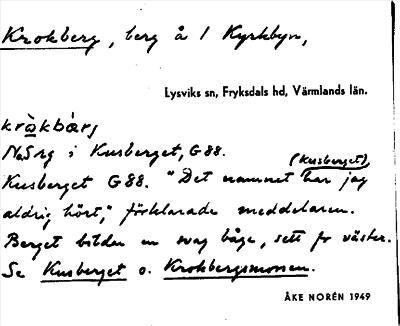 Krokberg, berg å 1 Kyrkbyn,
Lysviks sn, Fryksdals hd, Värmlands län.
kràkbàrj
N.Srg i Kusberget, G88.
(Kusberget),
Kusberget G88. "Det namnet har jag
aldrig hört," förklarade meddelaren.
Berget bildar en svag båge, sett fr väster.
Se Kusberget o. Krokbergsmossen.
ÅKE NORÉN 1949